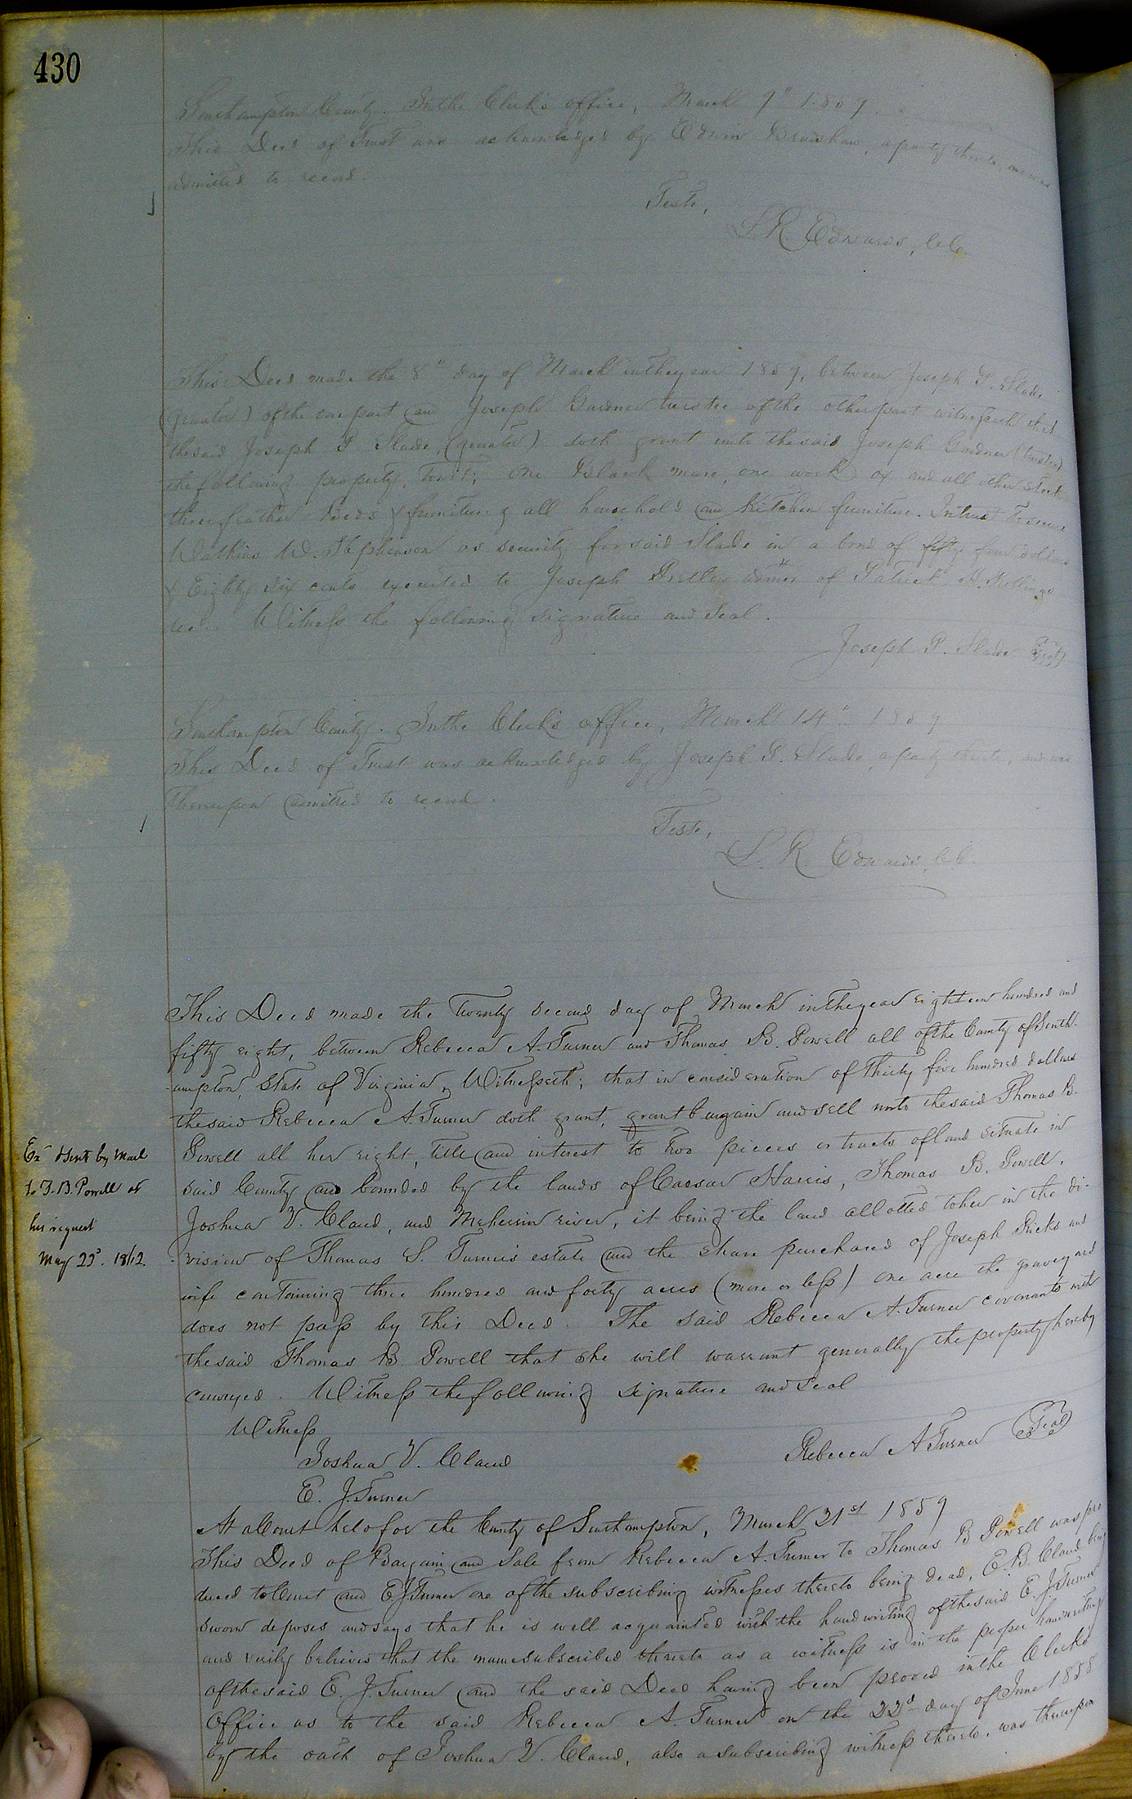 430
Southampton County. In the Clerk's office, March 9" 1859
This Deed of Trust was acknowledged by Edwin Bradshaw, a party thereto, and was
admitted to record.
Teste,
L. R. Edwards, C.C.
This Deed made the 8" day of March in the year 1859, between Joseph P. Slade
(grantor) of the one part and Joseph Gardner trustee of the other part witnesseth that
the said Joseph P Slade, (grantor) doth grant unto the said Joseph Gardner (trustee)
the following property, towit; One Black mare, one work ox and all other stock
three feather Beds & furniture & all household and kitchen furniture. In trust to secure
Watkins W. Stephenson as security for said Slade in a bond of fifty four dollars
& Eighty six cents executed to Joseph admor of Patrick H.
dec. Witness the following signature and seal.
Joseph P. Slade Seal
Southampton County. In the Clerk's office, March 14" 1859
This Deed of Trust was acknowledged by Joseph P. Slade, a party thereto, and was
thereupon admitted to record.
Teste,
L. R. Edwards, C.C.
This Deed made the Twenty second day of March in the year Eighteen hundred and
fifty eight, between Rebecca A. Turner and Thomas B. Powell all of the County of South-
ampton, State of Virginia, Witnesseth; that in consideration of Thirty five hundred dollars
the said Rebecca A. Turner doth grant, grant bargain and sell unto the said Thomas B.
Powell all her right, title and interest to two pieces or tracts of land situate in
said County and bounded by the lands of Caesar Harris, Thomas B. Powell,
Joshua V. Claud, and Meherrin river, it being the land allotted to her in the di-
vision of Thomas S. Turner's estate and the share purchased of Joseph Ricks and
wife containing three hundred and forty acres (more or less) one acre the graveyard
does not pass by this Deed. The said Rebecca A. Turner covenants with
the said Thomas B Powell that she will warrant generally the property hereby
conveyed. Witness the following signature and seal
Ex^d & sent by mail
to T. B. Powell at
his request
May 23^d. 1862.
Witness
Joshua V. Claud
Rebecca A Turner Seal
E. J. Turner
At a Court held for the County of Southampton, March 21st 1859
This Deed of Bargain and Sale from Rebecca A. Turner to Thomas B Powell was pro
duced to Court and E J Turner one of the subscribing witnesses thereto being dead, E. B. Claud being
sworn deposes and says that he is well acquainted with the handwriting of the said E. J. Turner
and verily believes that the name subscribed thereto as a witness is in the proper handwriting
of the said E. J. Turner and the said Deed having been proved in the Clerk's
Office as to the said Rebecca A. Turner on the 22^d day of June 1858
by the oath of Joshua V. Claud, also a subscribing witness thereto, was thereupon